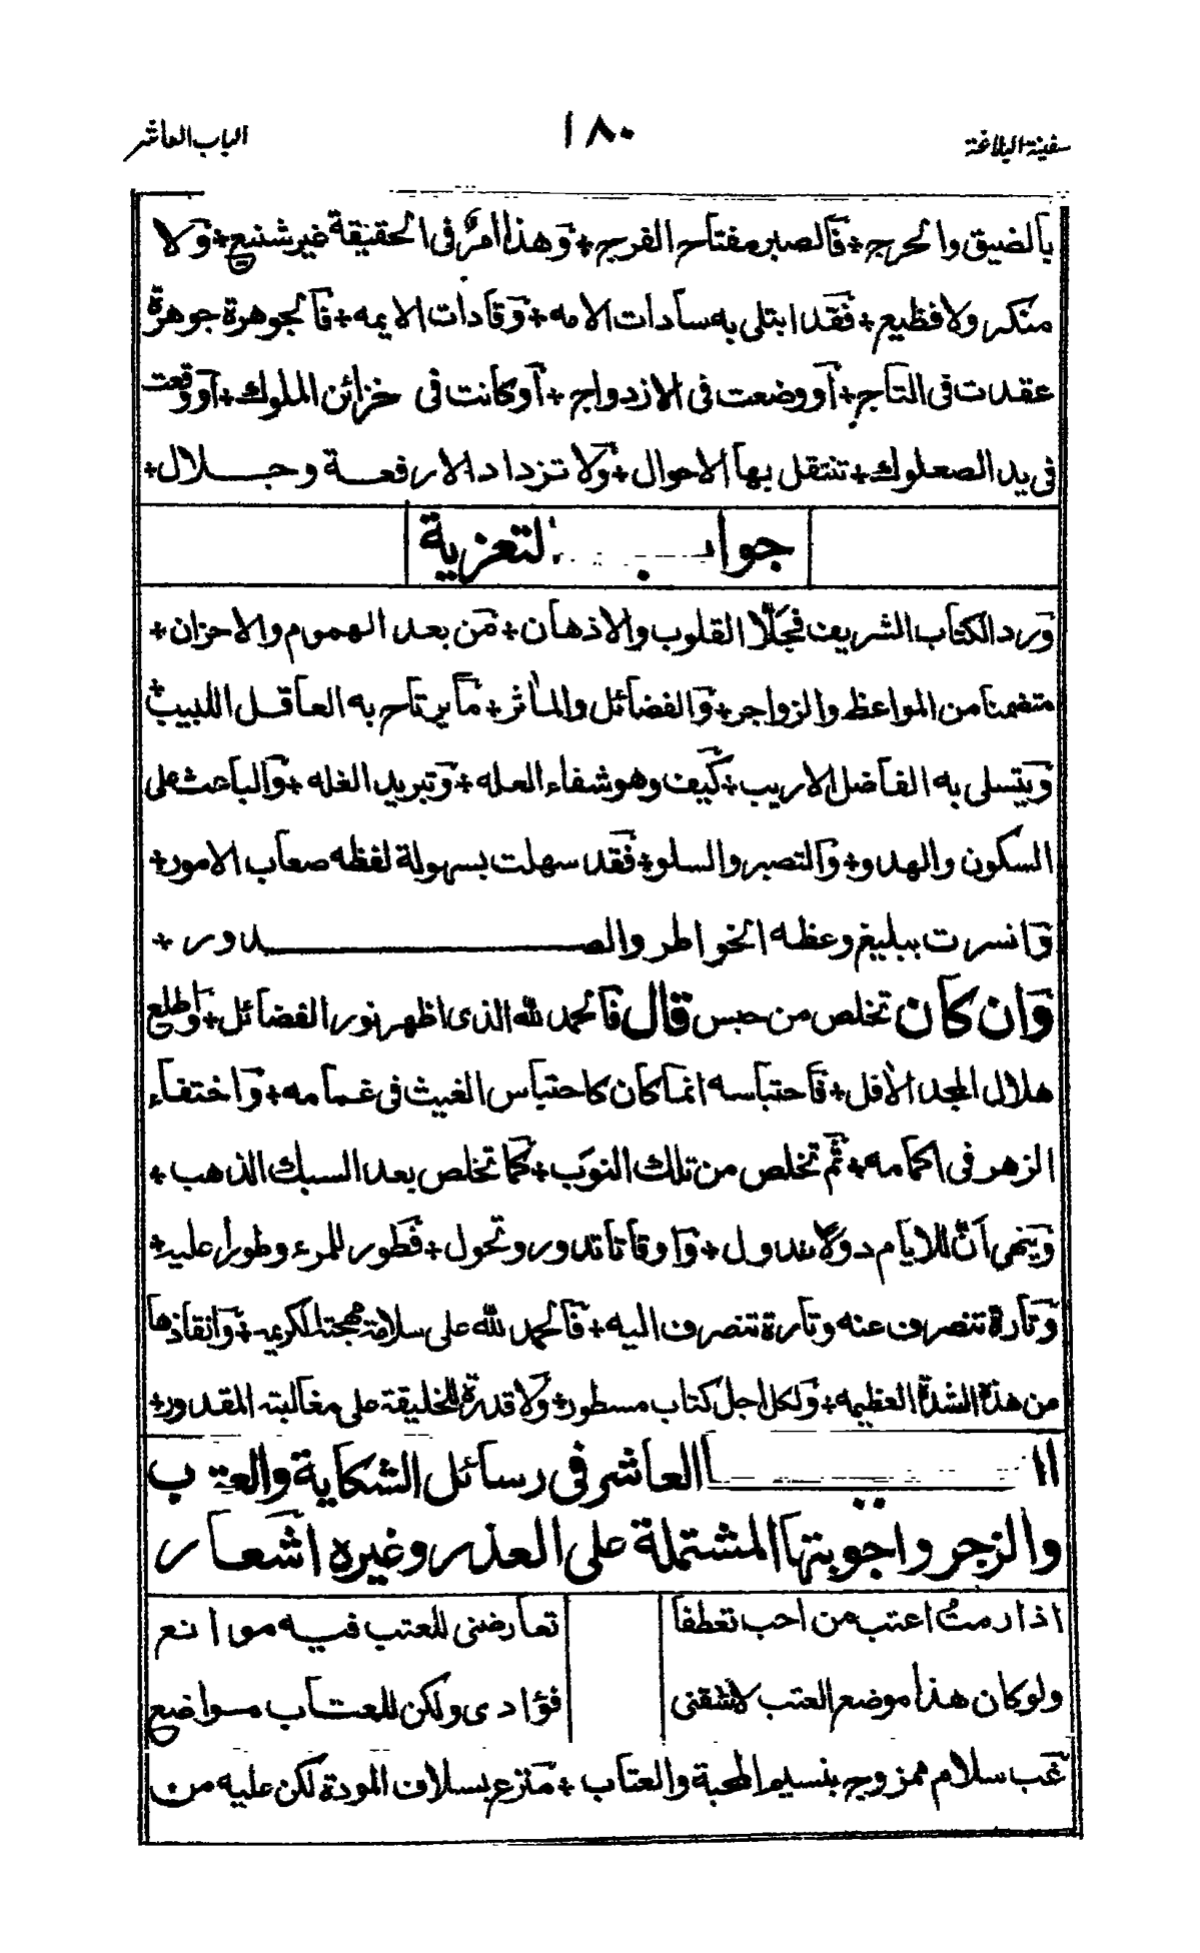 سفينة البلاغة ١٨٠ الباب العاشر
بالضيق والحرج + فالصبر مفتاح الفرج + وهذا امر فى الحقيقة غير شنيع + ولا
منكر ولا فظيع + فقد ابتلى به سادات الامه + وقادات الايمه + فالجوهرة جوهرة
عقدت فى التاج + أو وضعت فى الازدواج + أو كانت فى خزائن الملوك + أو وقعت
فى يد الصعلوك + تنتقل بها الاحوال + ولا تزداد الا رفعة وجلال +
جواب التعزية
ورد الكتاب الشريف فجلا القلوب والاذهان + من بعد الهموم والاحزان +
متضمنا من المواعظ والزواجر + والفضائل والمأثر + ما يرتاح به العاقل اللبيب +
ويتسلى به الفاضل الاريب + كيف وهو شفاء العله + وتبريد الغله + والباعث على
السكون والهدو + والتصبر والسلو + فقد سهلت بسهولة لفظه صعاب الامور +
وانسرت ببليغ وعظه الخواطر والصدور +
وان كان تخلص من حبس قال فالحمد لله الذى اظهر نور الفضائل + واطلع
هلال المجد الأفل + فاحتباسه انما كان كاحتباس الغيث فى غمامه + واختفاء
الزهر فى اكمامه + ثم تخلص من تلك النوب + كما تخلص بعد السبك الذهب +
وينهى أنّ للايام دولا تتداول + واوقاتا تدور وتحول + فطور للمرء وطورا عليه +
وتارة تنصرف عنه وتارة تنصرف اليه + فالحمد لله على سلامة مهجته الكريمه + وانقاذها
من هذه الشدة العظيمه + ولكل اجل كتاب مسطور + ولا قدرة للخليقة على مغالبته المقدور +
العاشر فى رسائل الشكاية والعتب
والزجر واجوبتها المشتملة على العذر وغيره اشعار
اذا رمتُ اعتب من احب تعطفا تعارضنى للعتب فيه موانع
ولو كان هذا موضع العتب لاشتفى فؤادى ولكن للعتاب مواضع
غب سلام ممزوج بنسيم المحبة والعتاب + منزع بسلاف المودة لكن عليه من